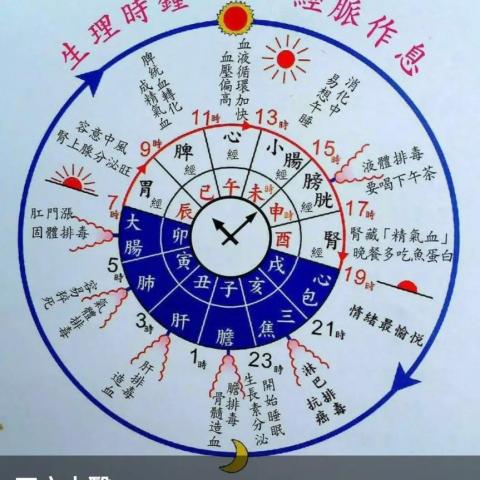 生理時鐘
經脈作息
血液循環加快
血壓偏高
脾統血轉化
成精氣血
消化中
易想午睡
11時
13時
心經
脾經
小腸經
9時
15時
容意中風
腎上腺分泌旺
液體排毒
要喝下午茶
胃經
膀胱經
巳
午
未時
辰
申時
7時
17時
肛門漲
固體排毒
大腸
卯
酉
腎經
腎藏「精氣血」
晚餐多吃魚蛋白
19時
5時
肺
寅
丑
子
亥
戌
心包
氣體排毒
容易猝死
情緒最愉悅
3時
肝
膽
三焦
21時
1時
23時
肝排毒
造血
膽排毒
骨髓造血
開始睡眠
生長素分泌
淋巴排毒
抗癌